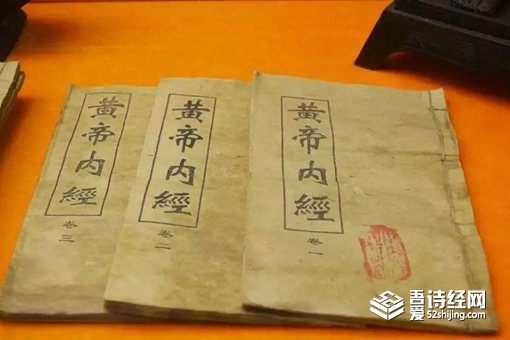 黄帝内經
卷三
黄帝内經
卷二
黄帝内經
卷一
吾爱诗经网
52shijing.com